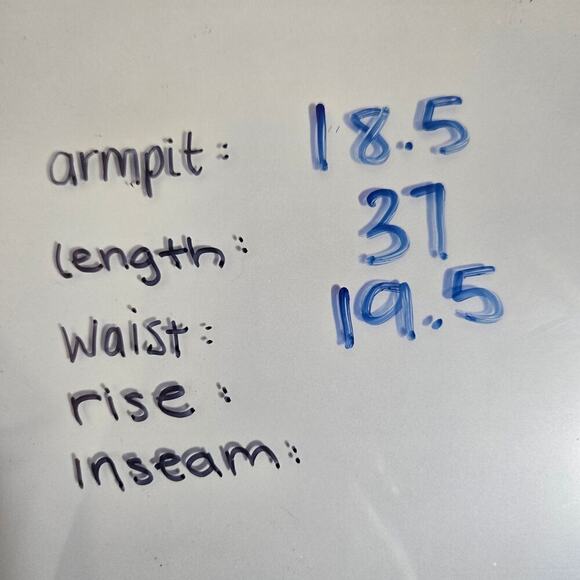 armpit: 18.5
length: 37
waist: 19.5
rise:
inseam: